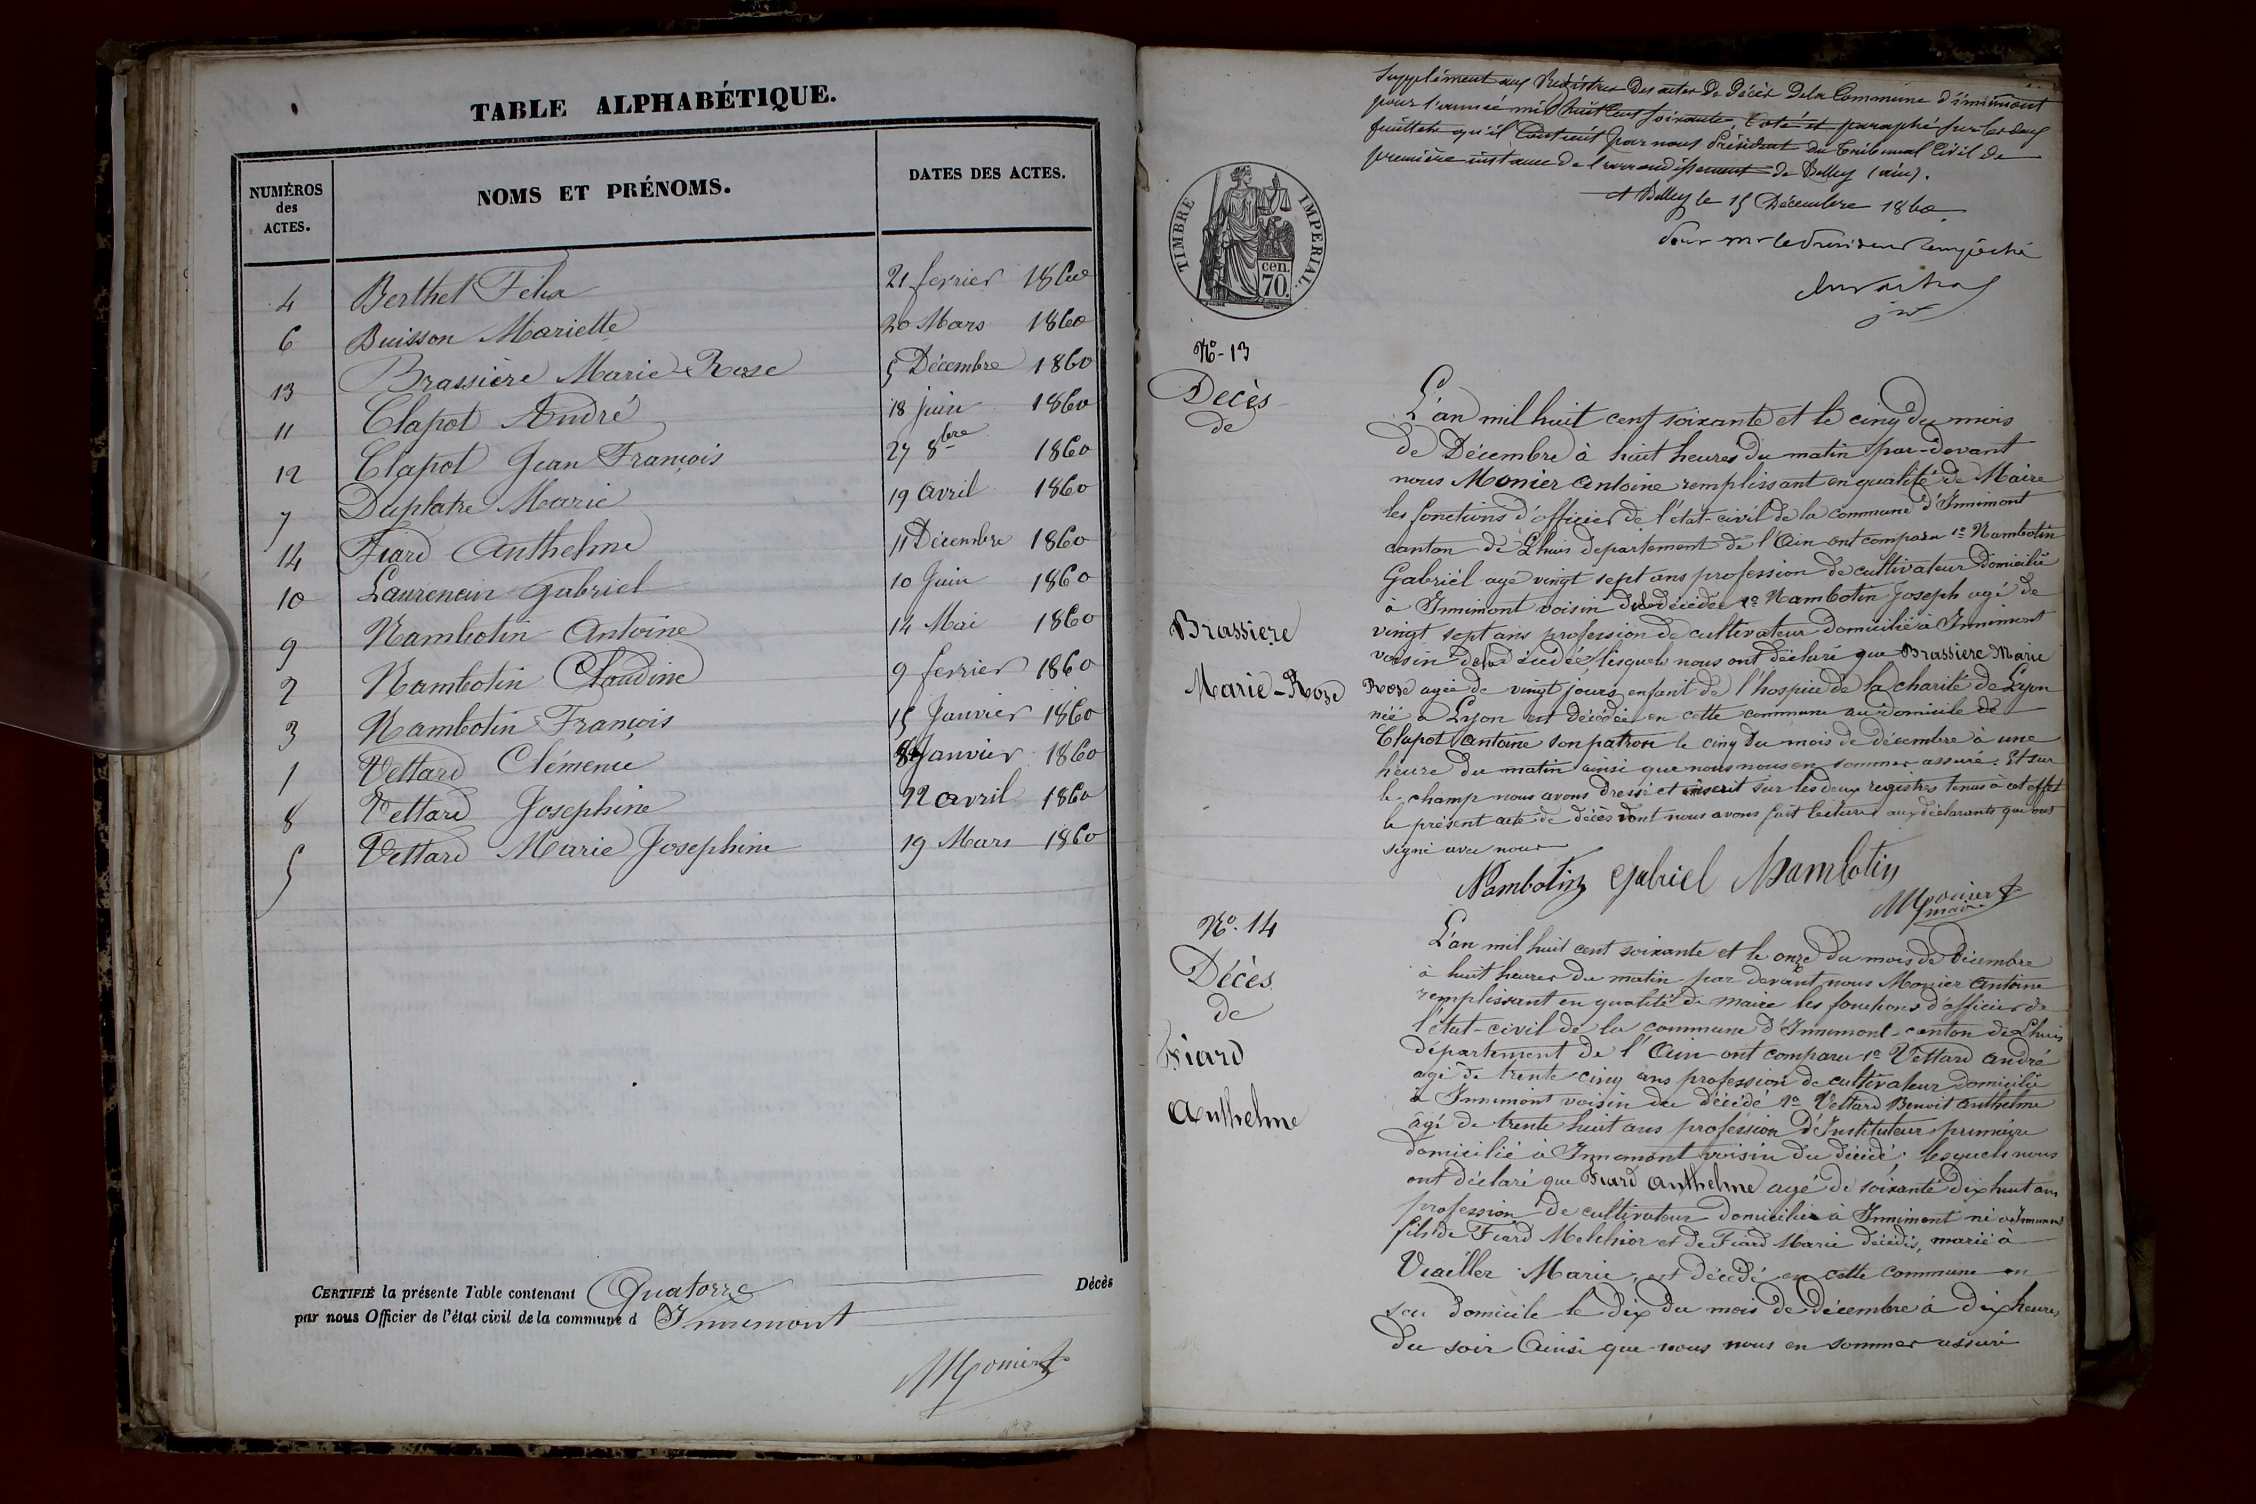 TABLE ALPHABÉTIQUE.
NUMÉROS des ACTES.
NOMS ET PRÉNOMS.
DATES DES ACTES.
4 Berthet Félix 21 fevrier 1860
6 Buisson Mariette 20 Mars 1860
13 Brassière Marie-Rose 5 Décembre 1860
11 Clapot André 18 juin 1860
12 Clapot Jean François 27 8bre 1860
7 Duplatre Marie 19 avril 1860
14 Fiard Anthelme 11 Décembre 1860
10 Laurencin Gabriel 10 Juin 1860
9 Nambotin Antoine 14 Mai 1860
2 Nambotin Claudine 9 fevrier 1860
3 Nambotin François 15 Janvier 1860
1 Vettard Clémence 8 Janvier 1860
8 Vettard Josephine 22 avril 1860
5 Vettard Marie Josephine 19 Mars 1860
CERTIFIÉ la présente Table contenant Quatorze Décès
par nous Officier de l'état civil de la commune d Innimont
Monier
Supplément aux Registres des actes de décès de la Commune d'innimont
pour l'année mil huit cent soixante, Coté et paraphé sur les deux
feuillets qu'il Contient par nous Président du Tribunal Civil de
première instance de l'arrondissement de Belley (ain).
A Belley le 15 Décembre 1860
Pour mr le President empêché
TIMBRE IMPERIAL.
cen.
70.
No 13
Decès
de
Brassiere
Marie-Rose
L'an mil huit cent soixante et le cinq du mois
de Décembre à huit heures du matin par-devant
nous Monier Antoine remplissant en qualité de Maire
les fonctions d'officier de l'état-civil de la commune d'Innimont
canton de Lhuis departement de l'Ain ont comparu 1o Nambotin
Gabriël agé vingt sept ans profession de cultivateur domicilié
à Innimont voisin de la décédée 2o Nambotin Joseph agé de
vingt sept ans profession de cultivateur domicilié à Innimont
voisin de la décédée lesquels nous ont déclaré que Brassiere Marie
Rose agée de vingt jours enfant de l'hospice de la charité de Lyon
née à Lyon est décédée en cette commune au domicile de
Clapot Antoine son patron le cinq du mois de décembre à une
heure du matin ainsi que nous nous en sommes assuré. Et sur
le champ nous avons dressé et inscrit sur les deux registres tenus à cet effet
le présent acte de décès dont nous avons fait lecture aux déclarants qui ont
signé avec nous
Nambotin Gabriel Nambotin
Monier
maire
No. 14
Décès
de
Fiard
Anthelme
L'an mil huit cent soixante et le onze du mois de Décembre
à huit heures du matin par devant nous Monier Antoine
remplissant en qualité de maire les fonctions d'officier de
l'état-civil de la commune d'Innimont canton de Lhuis
département de l'Ain ont comparu 1o Vettard André
agé de trente cinq ans profession de cultivateur domicilié
à Innimont voisin du décédé 2o Vettard Benoit Anthelme
âgé de trente huit ans profession d'Instituteur primaire
domicilié à Innimont voisin du décédé, lesquels nous
ont déclaré que Fiard Anthelme agé de soixante dix huit ans
profession de cultivateur domicilié à Innimont né à Innimont
fils de Fiard Melchior et de Fiard Marie décédés, marié à
Viaillez Marie, est décédé en cette commune en
son domicile le dix du mois de Décembre à dix heures
du soir Ainsi que nous nous en sommes assuré